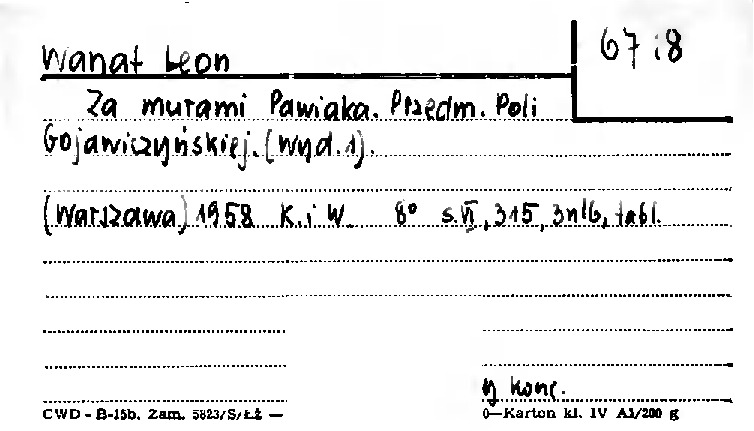 Wanat Leon
67 i 8
Za murami Pawiaka. Przedm. Poli
Gojawiczyńskiej. (Wyd. 1).
(Warszawa) 1958 K. i W. 8° s. VI, 315, 3 nlb, tabl.
CWD - B-15b. Zam. 5823/S/ŁŻ —
0—Karton kl. IV A1/200 g